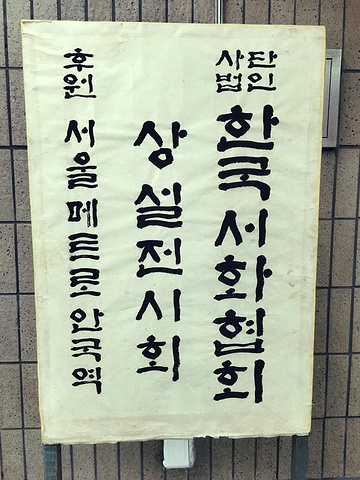 사단법인 한국서화협회
상설전시회
후원 서울메트로안국역